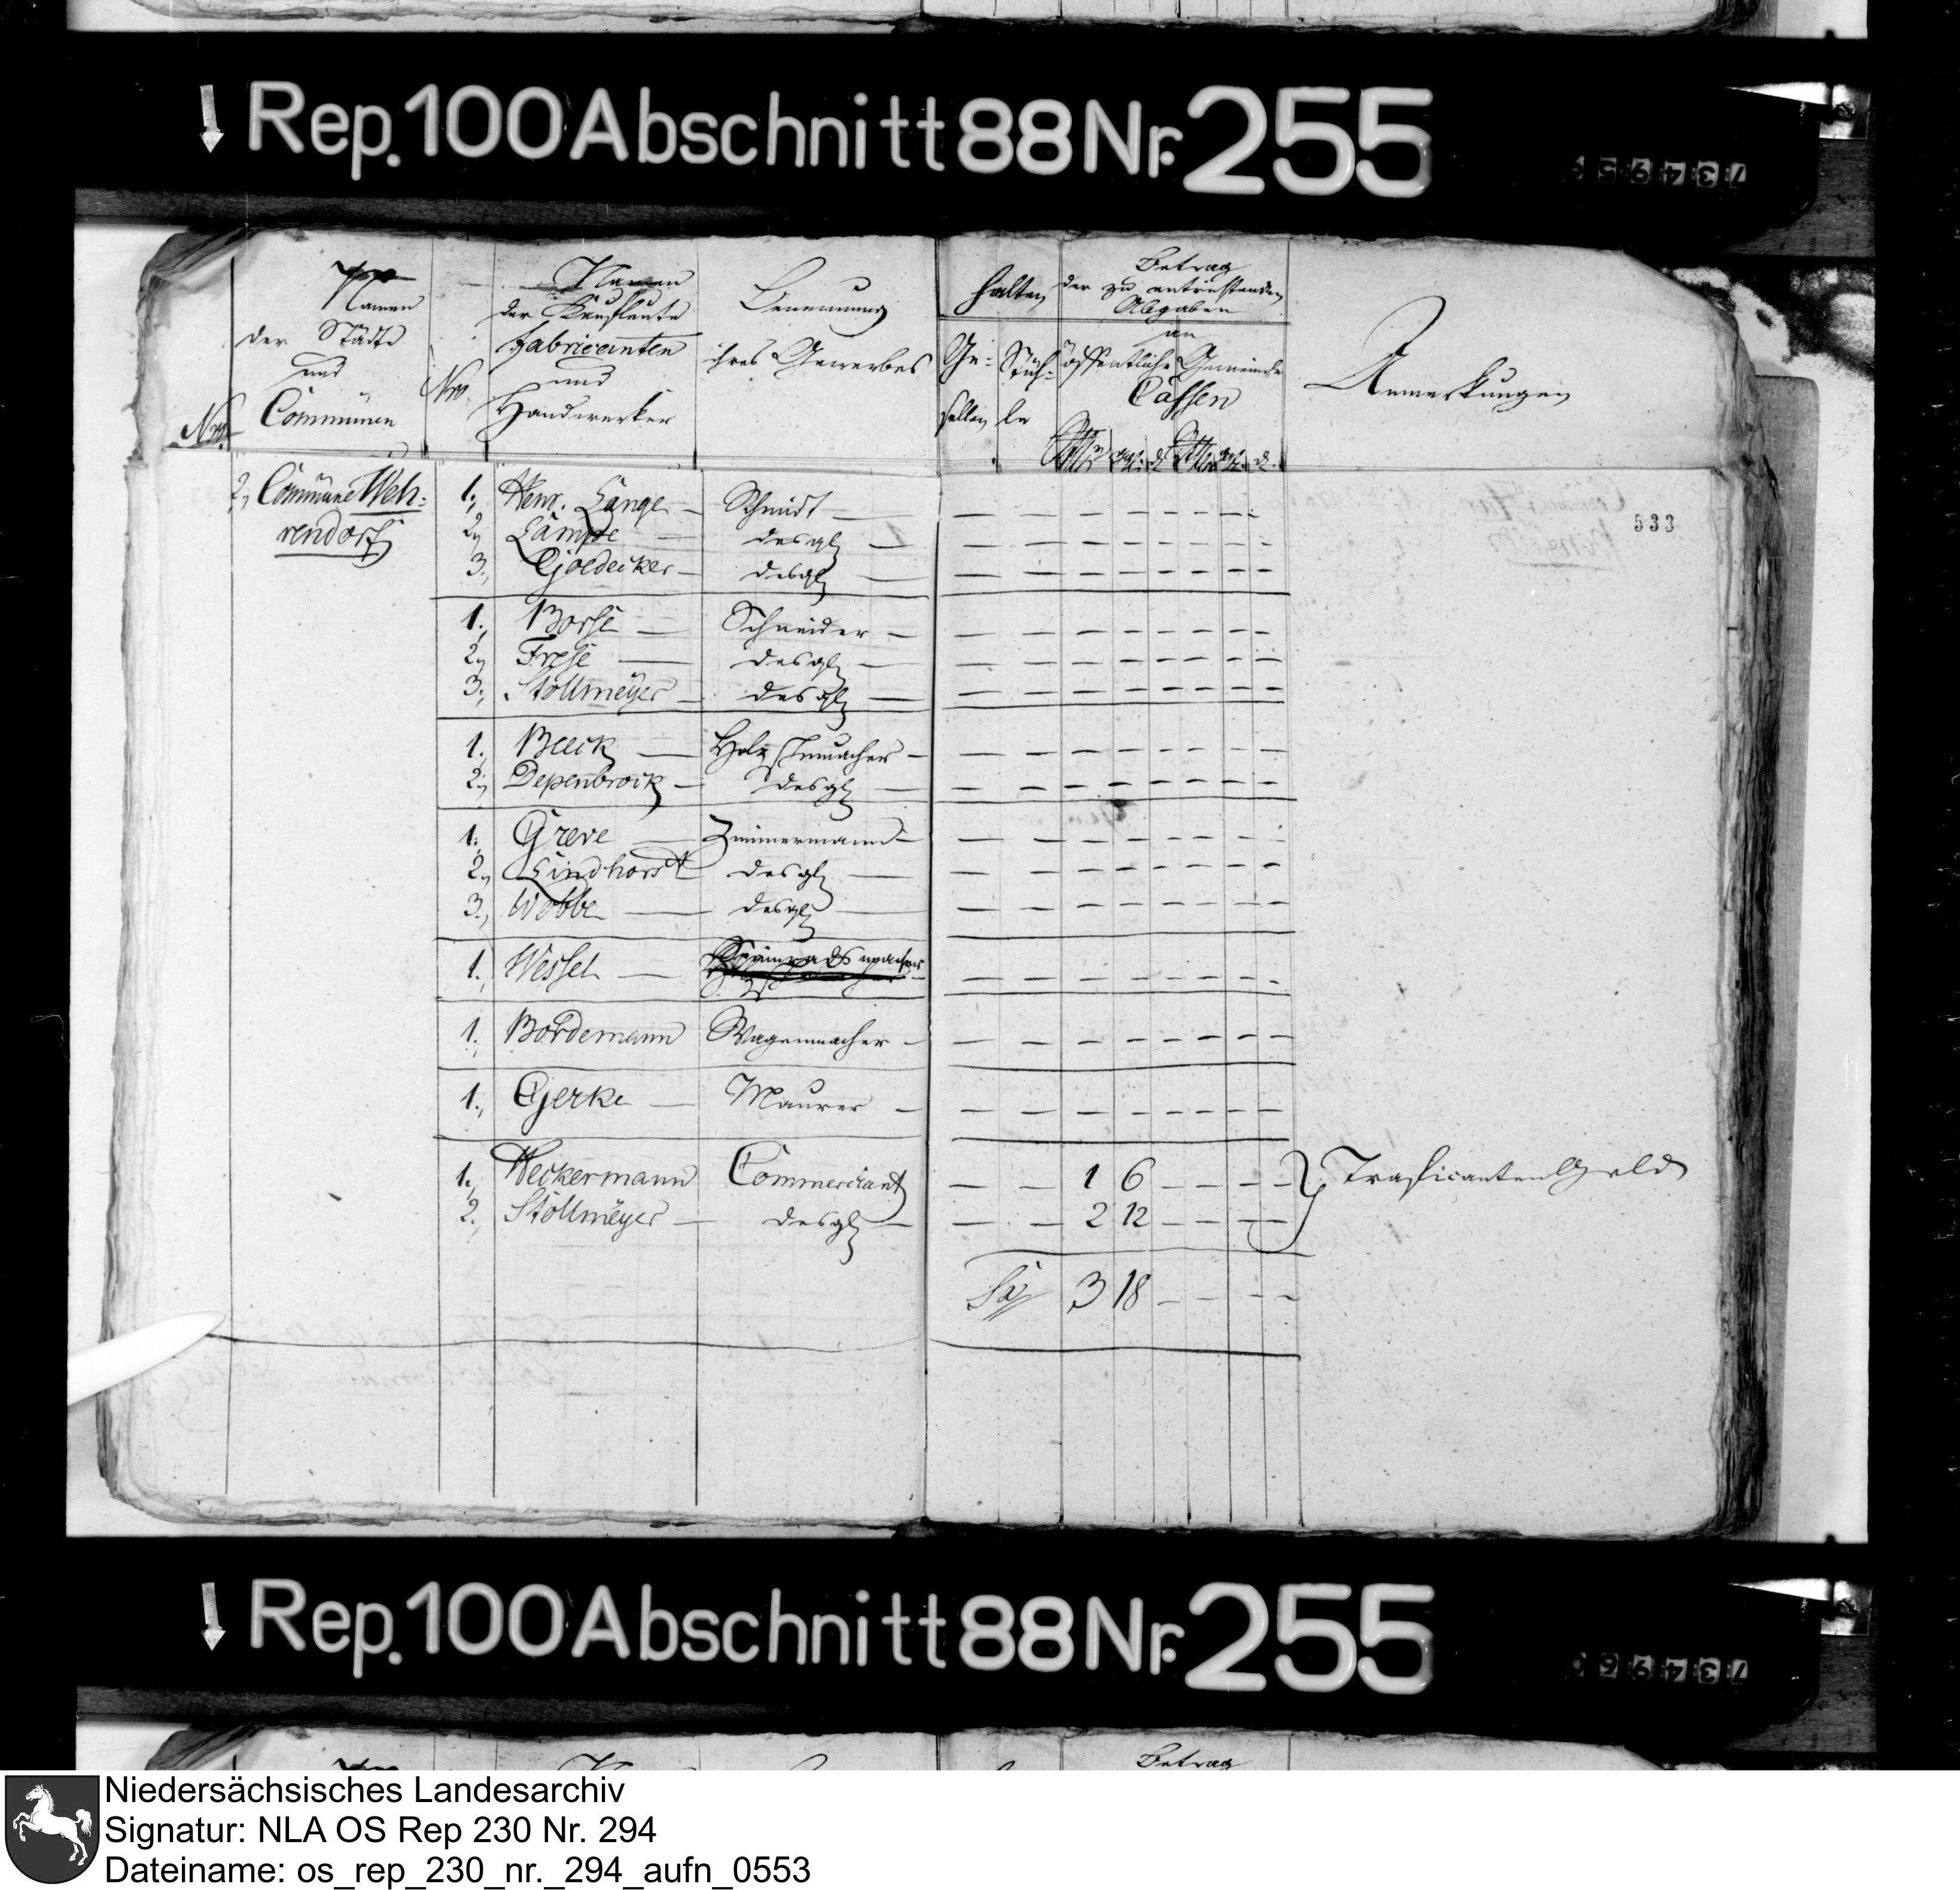 Rep. 100 Abschnitt 88 Nr. 255
734959
Nro.
Namen
der Städte
und
Communen
Nro.
Namen
der Kaufleute
Fabricanten
und
Handwerker
Benennung
ihres Gewerbes
halten
Ge-
sellen
Stüh-
le
Betrag
der zu entrichtenden
Abgaben
an
öffentliche Gemeinde
Cassen
Anmerkungen
533
2, Commune Weh-
rendorf
1., Henr. Lange — Schmidt — — — — — — — — —
2., Lampe — desgl — — — — — — — — —
3., Goedecker — desgl — — — — — — — — —
1., Borse — Schneider — — — — — — — — —
2., Frese — desgl — — — — — — — — —
3., Stöllmeyer — desgl — — — — — — — — —
1., Beeck — Holzschumacher — — — — — — — — —
2., Depenbrock — desgl — — — — — — — — —
1., Greve — Zimmermann — — — — — — — — —
2., Lindhorst desgl — — — — — — — — —
3., Wobbe — desgl — — — — — — — — —
1., Wessel — Spinnradsmacher — — — — — — — —
1., Bordemann Wagenmacher — — — — — — — — —
1., Gerke — Maurer — — — — — — — — —
1., Heckermann Commerciant — — 1 6 — — — — } Traficanten Geld
2., Stöllmeyer — desgl — — — 2 12 — — —
Sa 3 18 — — — —
Rep. 100 Abschnitt 88 Nr. 255
734960
Betrag
Niedersächsisches Landesarchiv
Signatur: NLA OS Rep 230 Nr. 294
Dateiname: os_rep_230_nr._294_aufn_0553